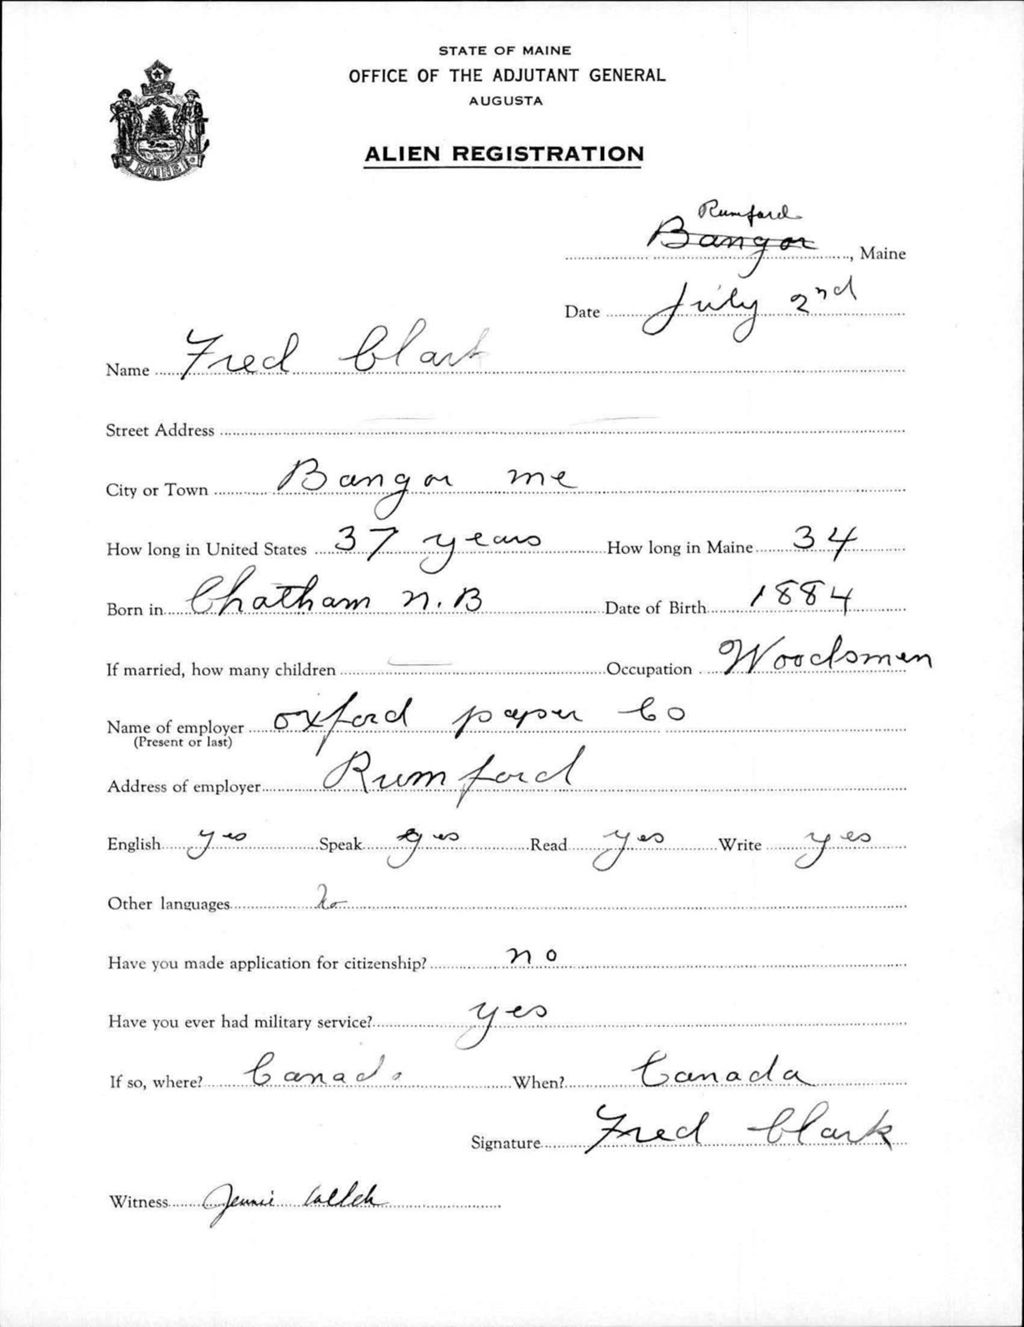 STATE OF MAINE
OFFICE OF THE ADJUTANT GENERAL
AUGUSTA
ALIEN REGISTRATION
MAINE
Rumford
Bangor, Maine
Date July 2nd
Name Fred Clark
Street Address
City or Town Bangor me
How long in United States 37 years How long in Maine 34
Born in Chatham N.B Date of Birth 1884
If married, how many children Occupation Woodsmen
Name of employer oxford paper Co
(Present or last)
Address of employer Rumford
English yes Speak yes Read yes Write yes
Other languages no
Have you made application for citizenship? no
Have you ever had military service? yes
If so, where? Canada When? Canada
Signature Fred Clark
Witness Jennie